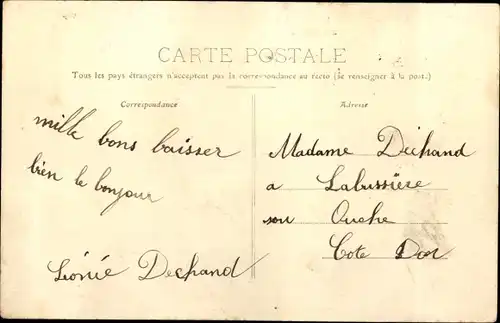 CARTE POSTALE
Tous les pays étrangers n'acceptent pas la correspondance au recto (Se renseigner à la poste.)
Correspondance
mille bons baisser
bien le bonjour
Léonie Dechand
Adresse
Madame Dechand
a Labussière
sur Ouche
Cote Dor